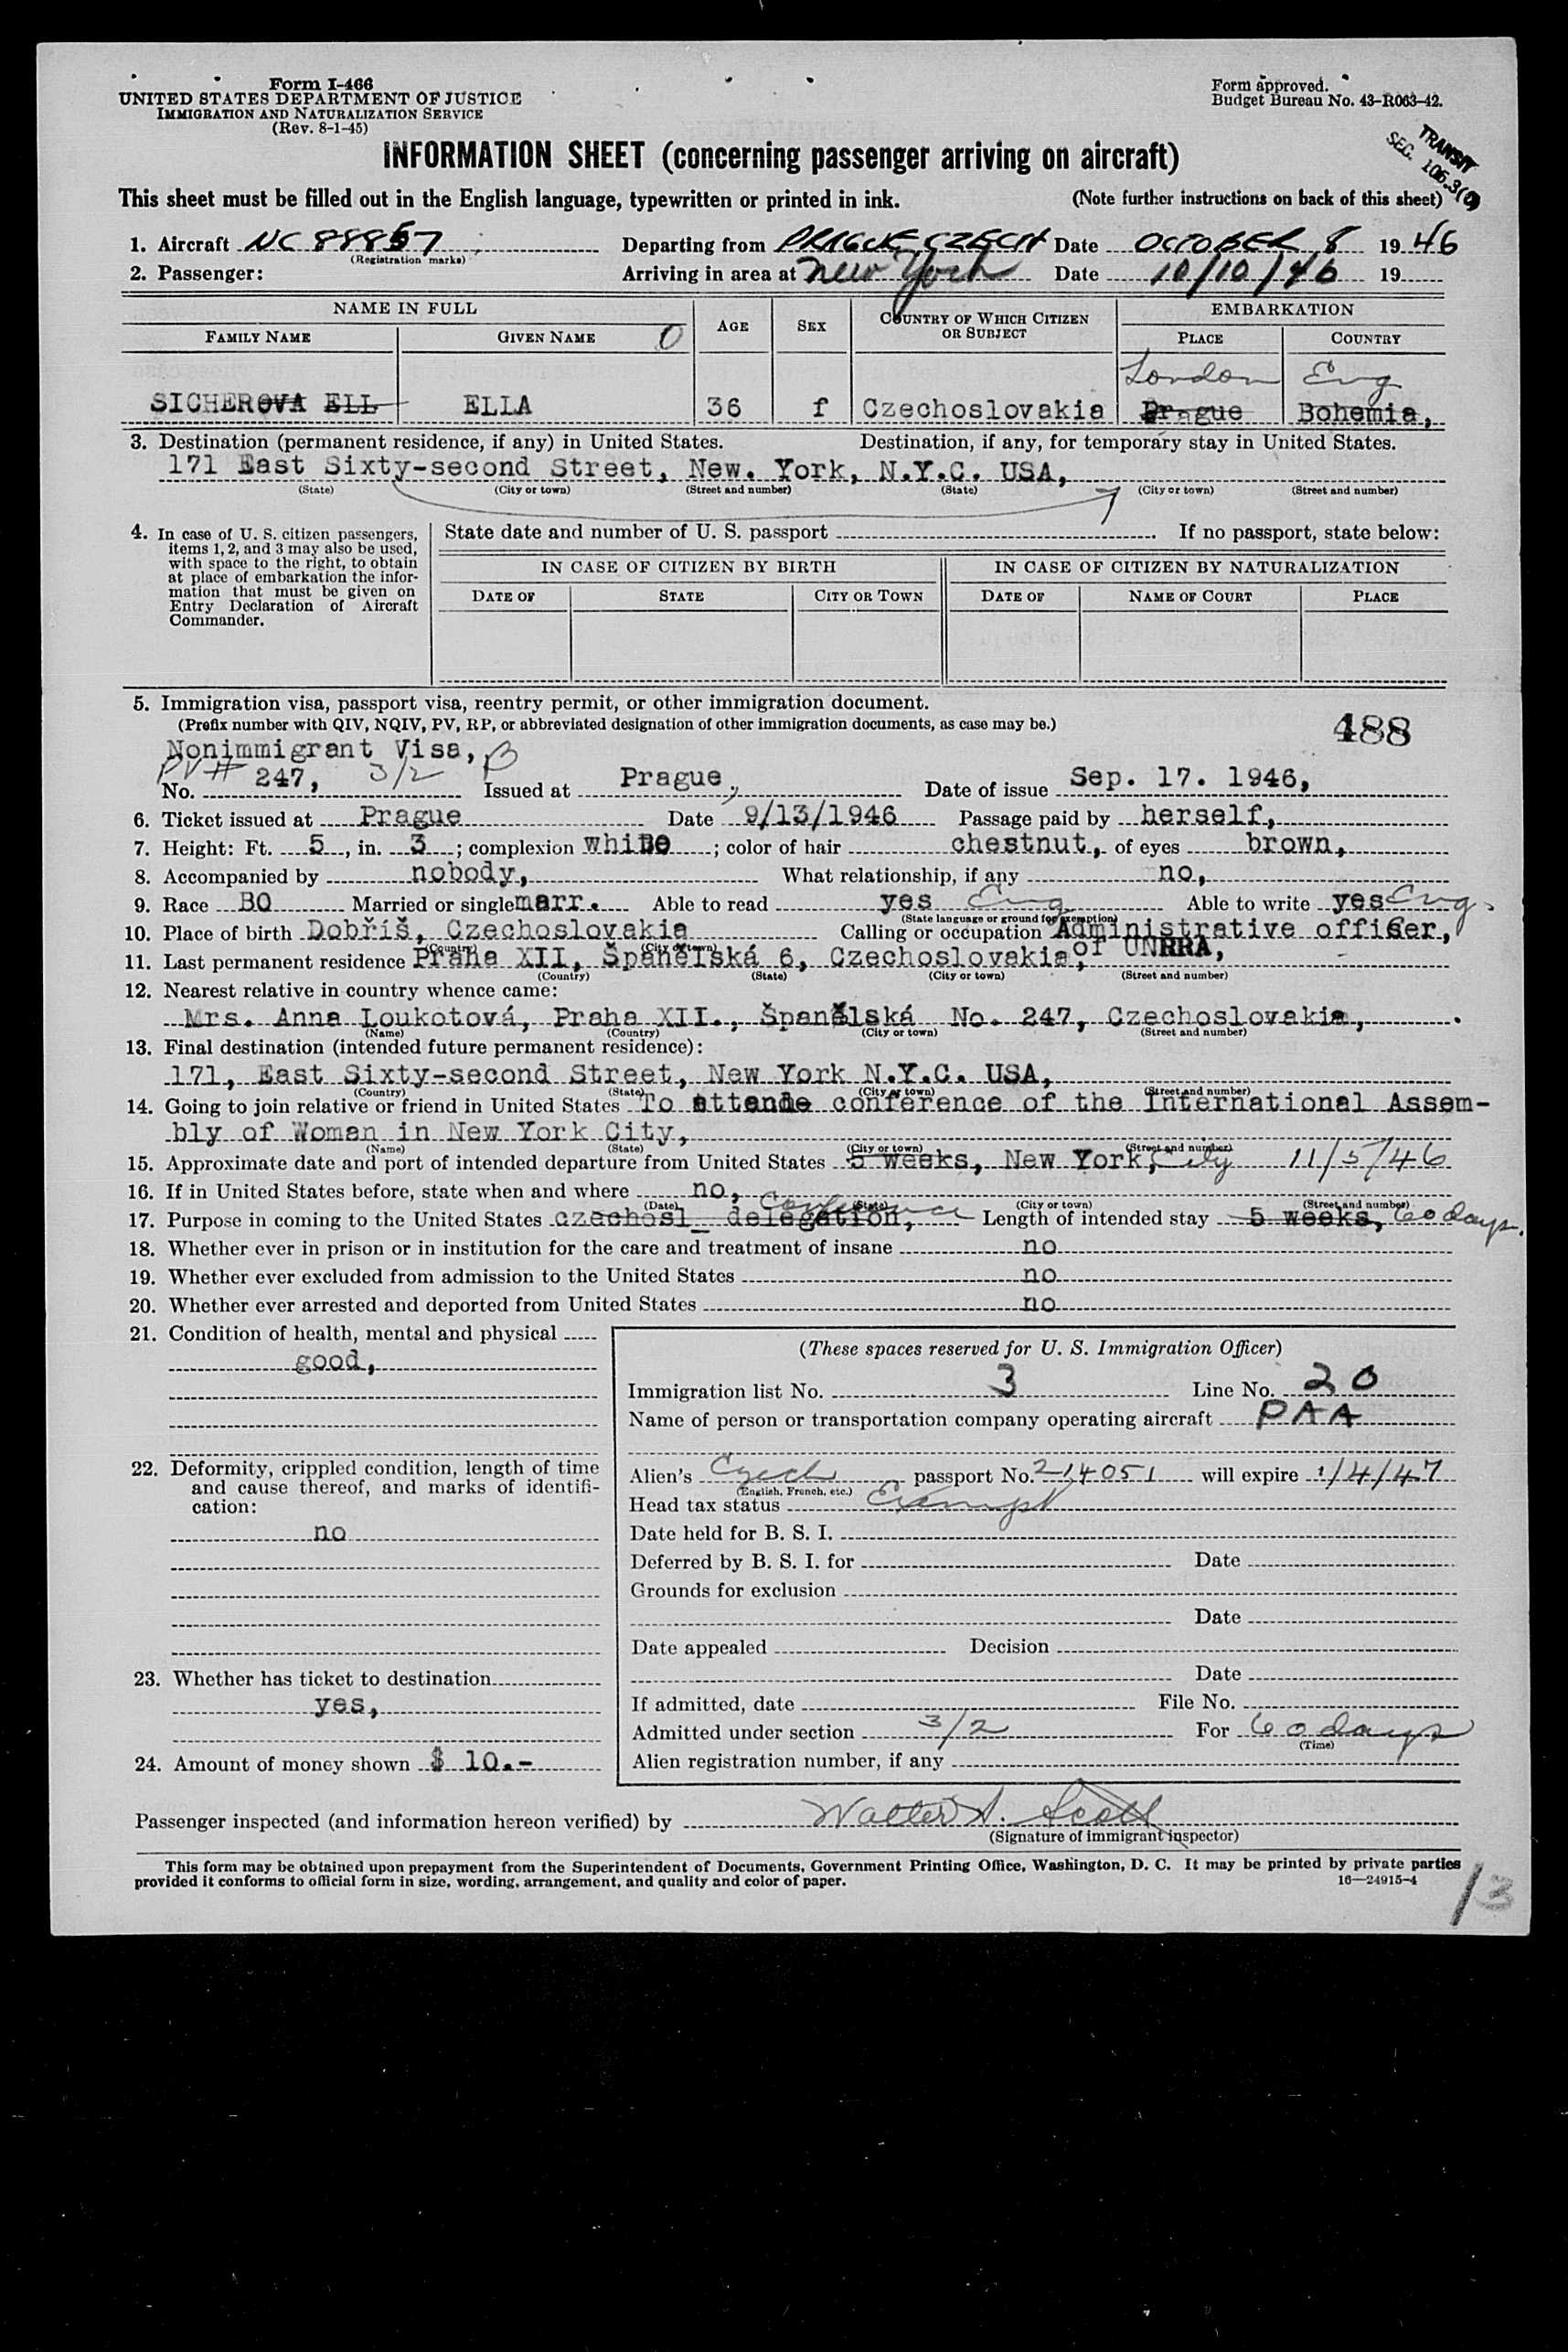 Form I-466
UNITED STATES DEPARTMENT OF JUSTICE
IMMIGRATION AND NATURALIZATION SERVICE
(Rev. 8-1-45)
Form approved.
Budget Bureau No. 43-R063-42.
TRANSIT
SEC. 105.3(
INFORMATION SHEET (concerning passenger arriving on aircraft)
This sheet must be filled out in the English language, typewritten or printed in ink. (Note further instructions on back of this sheet)
1. Aircraft NC 88857 Departing from PRAGUE CZECH Date OCTOBER 8 1946
(Registration marks)
2. Passenger: Arriving in area at New York Date 10/10/46 19
NAME IN FULL AGE SEX COUNTRY OF WHICH CITIZEN OR SUBJECT EMBARKATION
FAMILY NAME GIVEN NAME 0 PLACE COUNTRY
London Eng
SICHEROVA ELL ELLA 36 f Czechoslovakia Prague Bohemia,
3. Destination (permanent residence, if any) in United States. Destination, if any, for temporary stay in United States.
171 East Sixty-second Street, New. York, N.Y.C. USA,
(State) (City or town) (Street and number) (State) (City or town) (Street and number)
4. In case of U. S. citizen passengers, items 1, 2, and 3 may also be used, with space to the right, to obtain at place of embarkation the information that must be given on Entry Declaration of Aircraft Commander.
State date and number of U. S. passport If no passport, state below:
IN CASE OF CITIZEN BY BIRTH IN CASE OF CITIZEN BY NATURALIZATION
DATE OF STATE CITY OR TOWN DATE OF NAME OF COURT PLACE
5. Immigration visa, passport visa, reentry permit, or other immigration document.
(Prefix number with QIV, NQIV, PV, RP, or abbreviated designation of other immigration documents, as case may be.)
488
Nonimmigrant Visa, B
PV# 3/2
No. 247, Issued at Prague, Date of issue Sep. 17. 1946,
6. Ticket issued at Prague Date 9/13/1946 Passage paid by herself,
7. Height: Ft. 5, in. 3; complexion white; color of hair chestnut, of eyes brown,
8. Accompanied by nobody, What relationship, if any no,
9. Race BO Married or single marr. Able to read yes Eng Able to write yes Eng.
(State language or ground for exemption)
10. Place of birth Dobříš, Czechoslovakia Calling or occupation Administrative officer,
(Country) (City or town) of UNRRA,
11. Last permanent residence Praha XII, Španělská 6, Czechoslovakia,
(Country) (State) (City or town) (Street and number)
12. Nearest relative in country whence came:
Mrs. Anna Loukotová, Praha XII., Španělská No. 247, Czechoslovakia,
(Name) (Country) (City or town) (Street and number)
13. Final destination (intended future permanent residence):
171, East Sixty-second Street, New York N.Y.C. USA,
(Country) (State) (City or town) (Street and number)
14. Going to join relative or friend in United States To attende conference of the International Assem-
bly of Woman in New York City,
(Name) (State) (City or town) (Street and number)
15. Approximate date and port of intended departure from United States 5 weeks, New York, City 11/5/46
16. If in United States before, state when and where no,
(Date) (State) (City or town) (Street and number)
Conference
17. Purpose in coming to the United States czechosl_ delegation, Length of intended stay 5 weeks, 60 days.
18. Whether ever in prison or in institution for the care and treatment of insane no
19. Whether ever excluded from admission to the United States no
20. Whether ever arrested and deported from United States no
21. Condition of health, mental and physical
good,
22. Deformity, crippled condition, length of time and cause thereof, and marks of identification:
no
23. Whether has ticket to destination
yes,
24. Amount of money shown $ 10.-
(These spaces reserved for U. S. Immigration Officer)
Immigration list No. 3 Line No. 20
Name of person or transportation company operating aircraft PAA
Alien's Czech passport No. 214051 will expire 1/4/47
(English, French, etc.)
Head tax status Exempt
Date held for B. S. I.
Deferred by B. S. I. for Date
Grounds for exclusion
Date
Date appealed Decision
Date
If admitted, date File No.
Admitted under section 3/2 For 60 days
(Time)
Alien registration number, if any
Passenger inspected (and information hereon verified) by Walter A. Scott
(Signature of immigrant inspector)
This form may be obtained upon prepayment from the Superintendent of Documents, Government Printing Office, Washington, D. C. It may be printed by private parties
provided it conforms to official form in size, wording, arrangement, and quality and color of paper. 16—24915-4
13